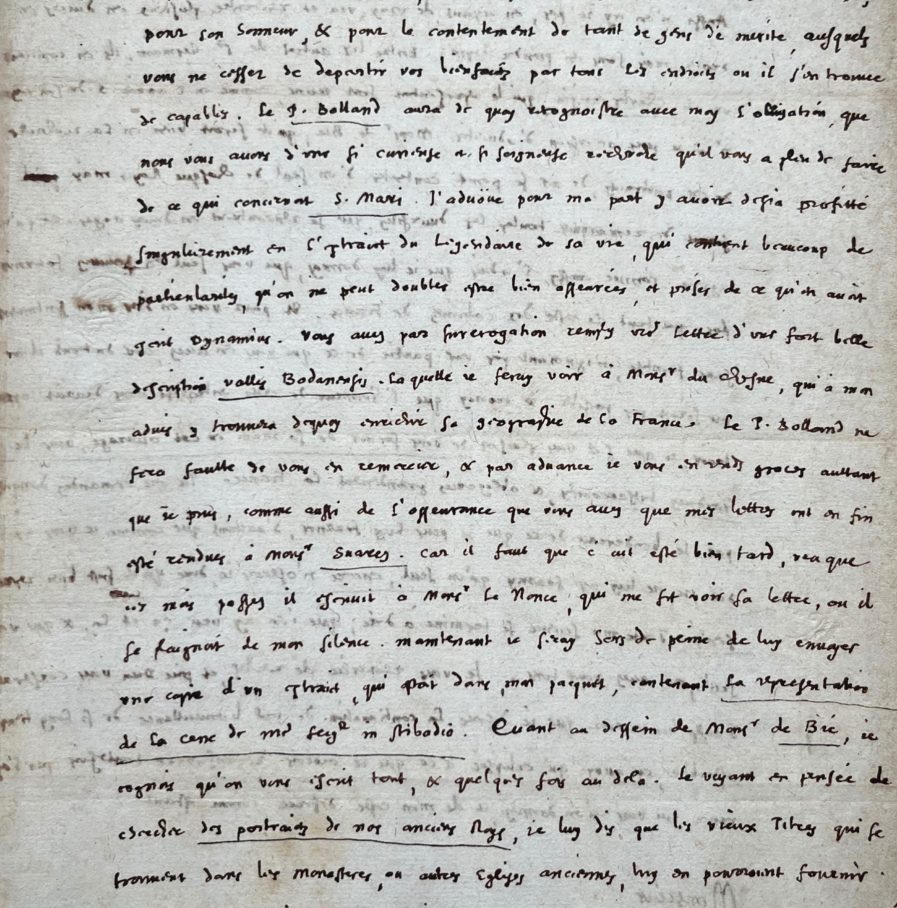 pour son honneur, & pour le contentement de tant de gens de merite, ausquels
vous ne cessez de departir vos bienfaicts par tous les endroits ou il s'en trouve
de capables. Le P. Bolland aura de quoy recognoistre avec moy l'obligation, que
nous vous avons d'une si curieuse et si soigneuse recherche qu'il vous a pleu de faire
de ce qui concernoit S. Mari. J'advoüe pour ma part y avoir desia profitté
singulierement en l'extraict du Legendaire de sa vie, qui contient beaucoup de
particularités, qu'on ne peut doubter estre bien asseurées, et prises de ce qu'en avoit
escrit Dynamius. Vous aves par surerogation remply vre lettre d'une fort belle
description vallis Bodanensis. Laquelle ie feray voir à Monsr du Chesne, qui à mon
advis y trouvera dequoy enrichir sa geographie de la France. Le P. Bolland ne
fera faulte de vous en remercier, & par advance ie vous en rends graces aultant
que ie puis, comme aussi de l'asseurance que vous aves que mes lettres ont en fin
esté rendues à Monsr Suares. Car il faut que c'ait esté bien tard, veu que
mois passez il escrivit à Monsr le Nonce, qui me fit voir sa lettre, ou il
se plaignoit de mon silence. maintenant ie seray hors de peine de luy envoyer
une copie d'un extraict, qui estoit dans mon pacquet, contenant la representation
de la cene de nre Seigr in stibadio. Quant au dessein de Monsr de Bie, ie
cognois qu'on vous escrit tout, & quelques fois au dela. Le voyant en pensée de
chercher des portraicts de nos anciens Roys, ie luy dis que les vieux Titres qui se
trouvent dans les monasteres, ou autres Eglises anciennes, luy en pourroient fournir.